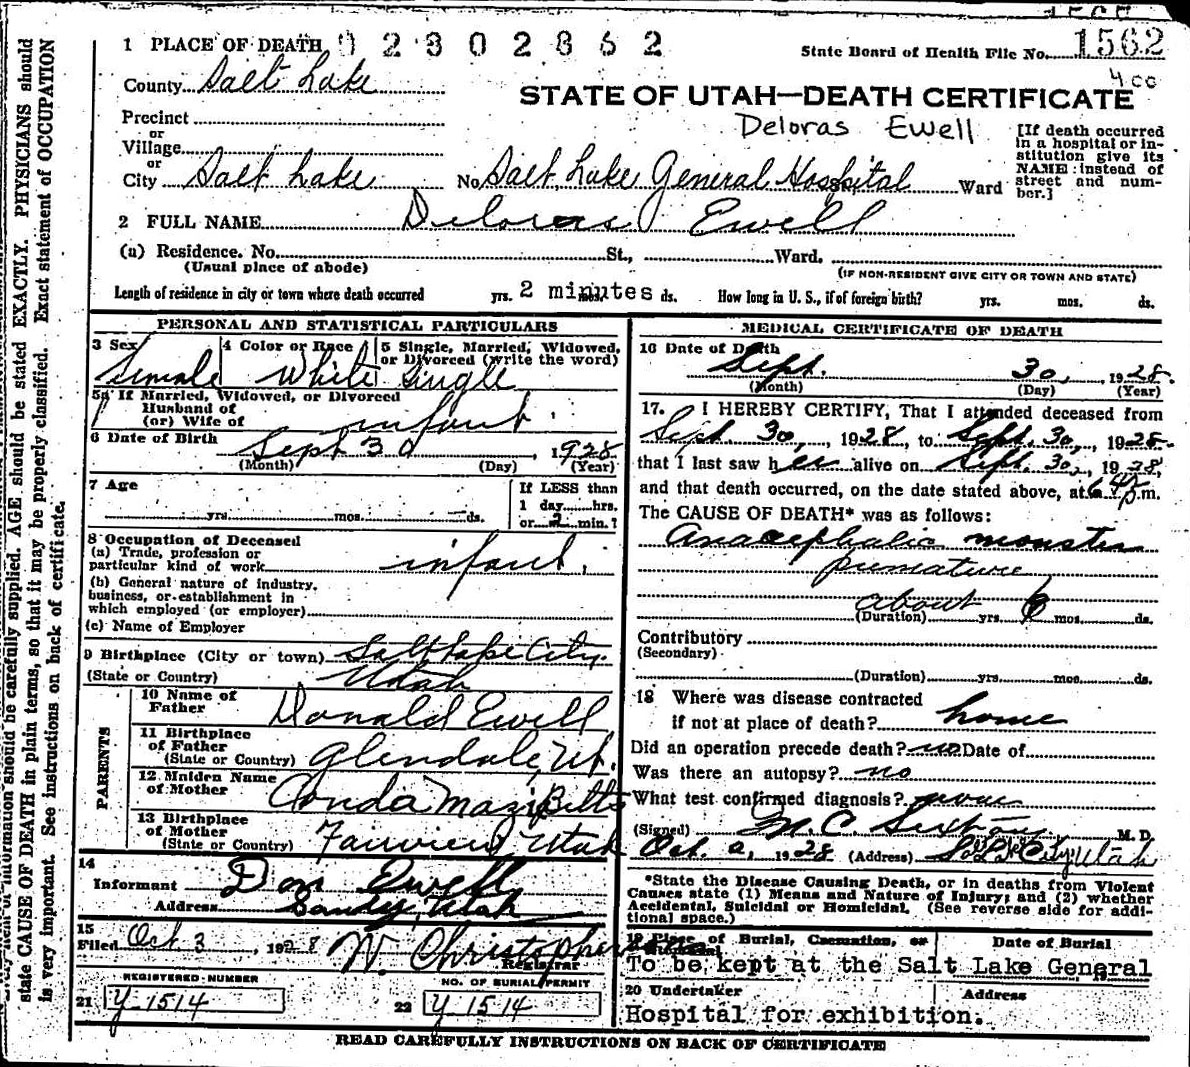 1 PLACE OF DEATH 02302862
State Board of Health File No. 1562
County Salt Lake
400
STATE OF UTAH—DEATH CERTIFICATE
Precinct
Deloras Ewell
or
Village
or
City Salt Lake No. Salt Lake General Hospital Ward
[If death occurred in a hospital or institution give its NAME instead of street and number.]
2 FULL NAME Deloras Ewell
(a) Residence. No. St., Ward.
(Usual place of abode) (IF NON-RESIDENT GIVE CITY OR TOWN AND STATE)
Length of residence in city or town where death occurred yrs. 2 minutes ds. How long in U. S., if of foreign birth? yrs. mos. ds.
PERSONAL AND STATISTICAL PARTICULARS
3 Sex Female
4 Color or Race White
5 Single, Married, Widowed, or Divorced (write the word) Single
5a If Married, Widowed, or Divorced
Husband of
(or) Wife of infant
6 Date of Birth Sept 30, 1928
(Month) (Day) (Year)
7 Age
yrs. mos. ds.
If LESS than
1 day hrs.
or 2 min.?
8 Occupation of Deceased
(a) Trade, profession or
particular kind of work infant.
(b) General nature of industry,
business, or establishment in
which employed (or employer)
(c) Name of Employer
9 Birthplace (City or town) Salt Lake City
(State or Country) Utah
PARENTS
10 Name of
Father Donald Ewell
11 Birthplace
of Father
(State or Country) Glendale, Ut.
12 Maiden Name
of Mother Betts
13 Birthplace
of Mother
(State or Country) Fairview, Utah
14
Informant Don Ewell
Address Sandy, Utah
15
Filed Oct 3, 1928
Registrar
REGISTERED NUMBER
21 Y-1514
NO. OF BURIAL PERMIT
22 Y-1514
MEDICAL CERTIFICATE OF DEATH
16 Date of Death
Sept. 30, 1928.
(Month) (Day) (Year)
17. I HEREBY CERTIFY, That I attended deceased from
Sept. 30, 1928, to Sept. 30, 1928
that I last saw her alive on Sept. 30, 1928,
and that death occurred, on the date stated above, at 6:45 p.m.
The CAUSE OF DEATH* was as follows:
Anacephalic monster
premature
about
(Duration) yrs. 6 mos. ds.
Contributory
(Secondary)
(Duration) yrs. mos. ds.
18 Where was disease contracted
if not at place of death? home
Did an operation precede death? no Date of
Was there an autopsy? no
What test confirmed diagnosis? none
(Signed) M. C. Sexton M. D.
Oct. 2, 1928 (Address) Salt Lake City, Utah
*State the Disease Causing Death, or in deaths from Violent
Causes state (1) Means and Nature of Injury; and (2) whether
Accidental, Suicidal or Homicidal. (See reverse side for addi-
tional space.)
19 Place of Burial, Cremation, or Removal Date of Burial
To be kept at the Salt Lake General
20 Undertaker Address
Hospital for exhibition.
READ CAREFULLY INSTRUCTIONS ON BACK OF CERTIFICATE
information should be carefully supplied. AGE should be stated EXACTLY. PHYSICIANS should
state CAUSE OF DEATH in plain terms, so that it may be properly classified. Exact statement of OCCUPATION
is very important. See instructions on back of certificate.